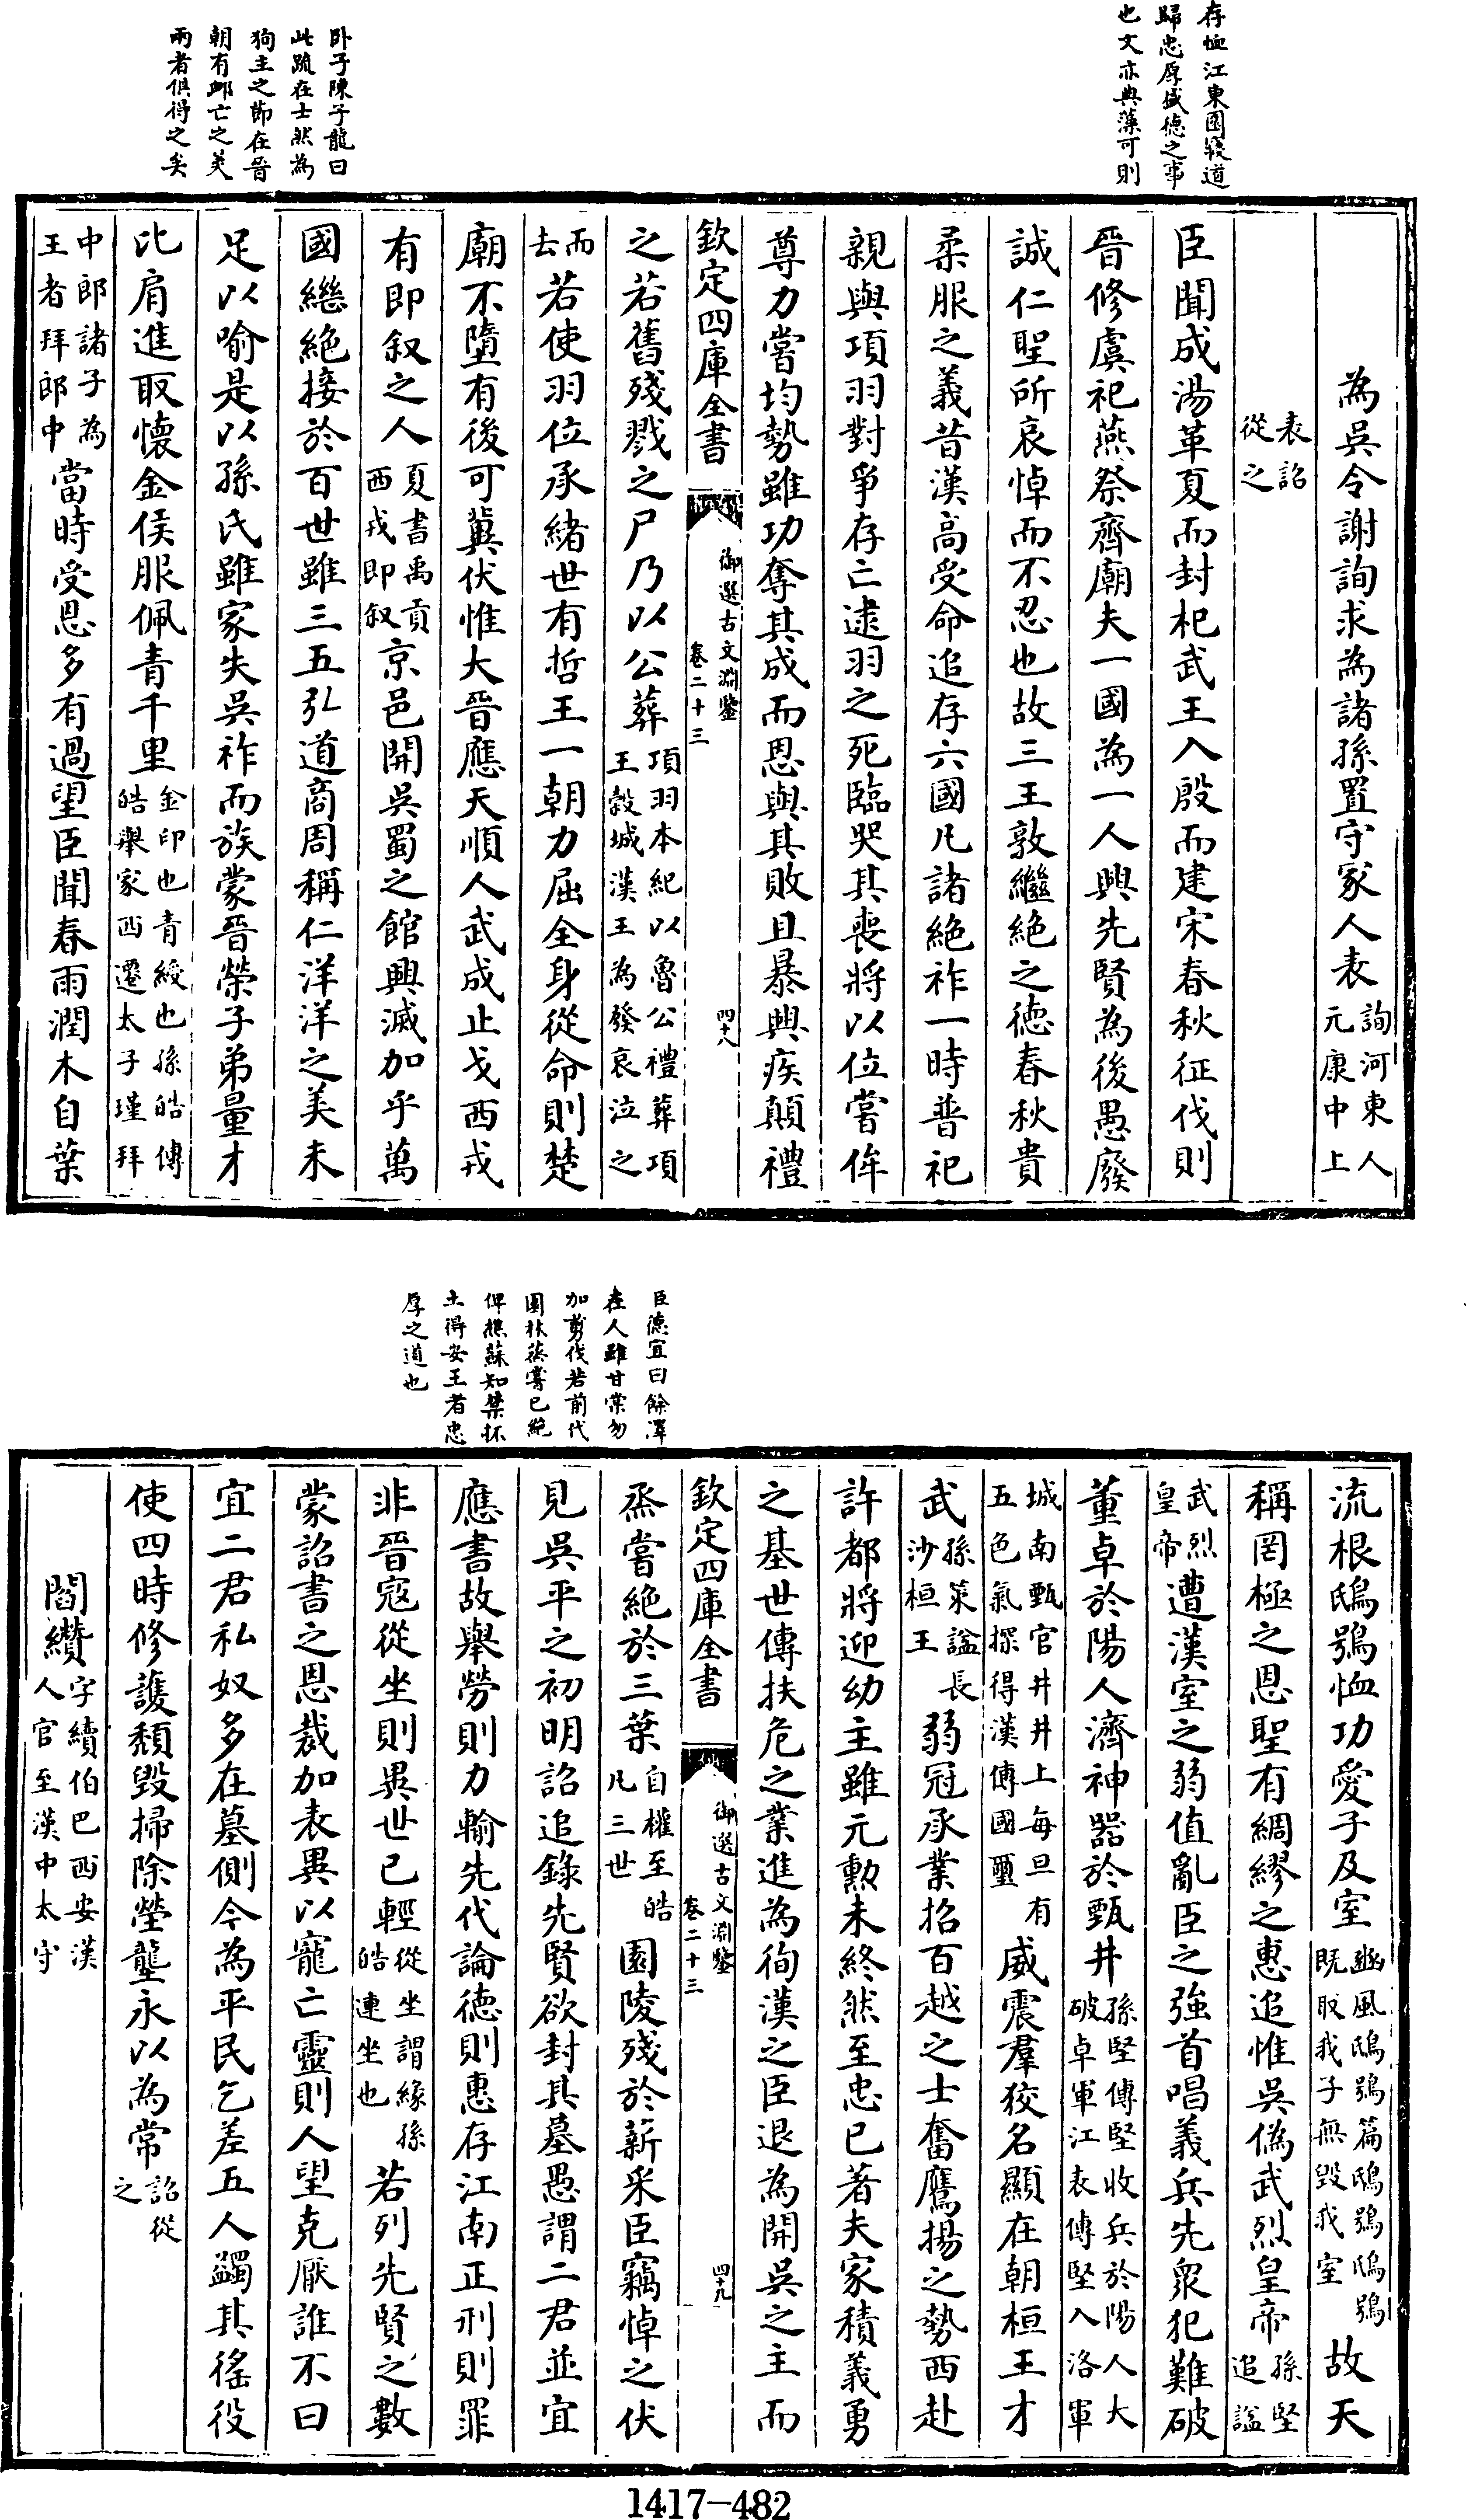 存恤江東園寢道
歸忠厚盛徳之事
也文亦典藻可則
臥子陳子龍曰
此䟽在士然為
狥主之節在晉
朝有䘏亡之美
兩者俱得之矣
為吳令謝詢求為諸孫置守冢人表詢河東人元康中上
表詔從之
臣聞成湯革夏而封杞武王入殷而建宋春秋征伐則
晉修虞祀燕祭齊廟夫一國為一人興先賢為後愚廢
誠仁聖所哀悼而不忍也故三王敦繼絶之徳春秋貴
柔服之義昔漢高受命追存六國凡諸絶祚一時普祀
親與項羽對爭存亡逮羽之死臨哭其喪將以位嘗侔
尊力嘗均勢雖功奪其成而恩與其敗且暴興疾顛禮
欽定四庫全書
御選古文淵鑒
卷二十三
四十八
之若舊殘戮之尸乃以公葬項羽本紀以魯公禮葬項王穀城漢王為發哀泣之
而去若使羽位承緒世有哲王一朝力屈全身從命則楚
廟不墮有後可冀伏惟大晉應天順人武成止戈西戎
有即叙之人夏書禹貢西戎即叙京邑開吳蜀之館興滅加乎萬
國繼絶接於百世雖三五弘道商周稱仁洋洋之美未
足以喻是以孫氏雖家失吳祚而族蒙晉榮子弟量才
比肩進取懷金侯服佩青千里金印也青綬也孫皓傳皓舉家西遷太子瑾拜
中郎諸子為王者拜郎中當時受恩多有過望臣聞春雨潤木自葉
臣徳宜曰餘澤
在人雖甘棠勿
加剪伐若前代
園林蒸嘗已絶
俾樵蘇知禁抔
土得安王者忠
厚之道也
流根鴟鴞恤功愛子及室豳風鴟鴞篇鴟鴞鴟鴞既取我子無毀我室故天
稱罔極之恩聖有綢繆之惠追惟吳偽武烈皇帝孫堅追諡
武烈皇帝遭漢室之弱值亂臣之強首唱義兵先衆犯難破
董卓於陽人濟神器於甄井孫堅傳堅收兵於陽人大破卓軍江表傳堅入洛軍
城南甄官井井上每旦有五色氣探得漢傳國璽威震羣狡名顯在朝桓王才
武孫策諡長沙桓王弱冠承業招百越之士奮鷹揚之勢西赴
許都將迎幼主雖元勲未終然至忠已著夫家積義勇
之基世傳扶危之業進為徇漢之臣退為開吳之主而
欽定四庫全書
御選古文淵鑒
卷二十三
四十九
烝嘗絶於三葉自權至皓凡三世園陵殘於薪采臣竊悼之伏
見吳平之初明詔追錄先賢欲封其墓愚謂二君並宜
應書故舉勞則力輸先代論徳則惠存江南正刑則罪
非晉寇從坐則異世已輕從坐謂緣孫皓連坐也若列先賢之數
蒙詔書之恩裁加表異以寵亡靈則人望克厭誰不曰
宜二君私奴多在墓側今為平民乞差五人蠲其徭役
使四時修護頽毀掃除塋壟永以為常詔從之
閻纘字續伯巴西安漢人官至漢中太守
1417-482